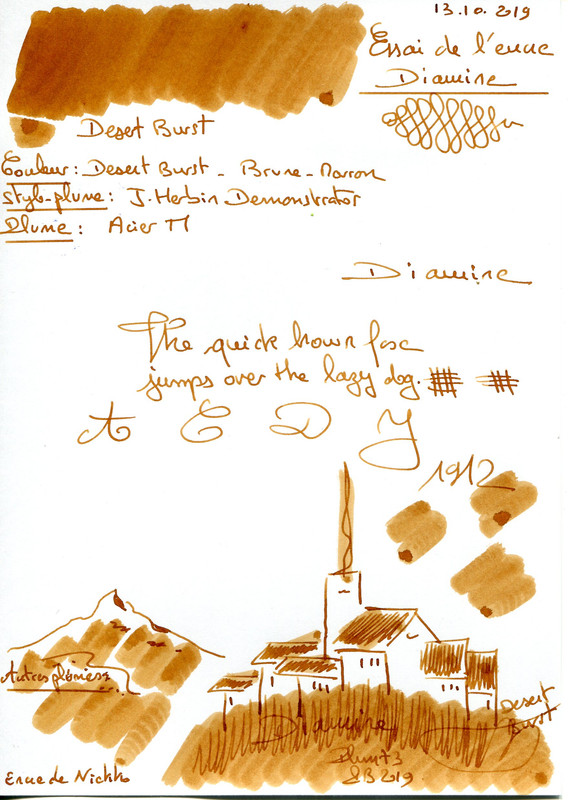 13.10.2019
Essai de l'encre
Diamine
Desert Burst
Couleur: Desert Burst - Brune-Marron
Stylo-plume: J. Herbin Demonstrator
Plume: Acier M
Diamine
The quick brown fox
jumps over the lazy dog.
A E D Y
1912
Diamine
Desert
Burst
2019
Encre de